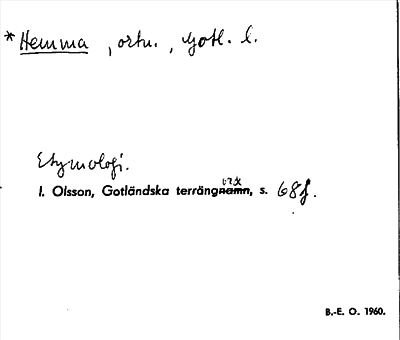 *Hemma, ortn., Gotl. l.
Etymologi.
ord
I. Olsson, Gotländska terrängnamn, s. 68f.
B.-E. O. 1960.